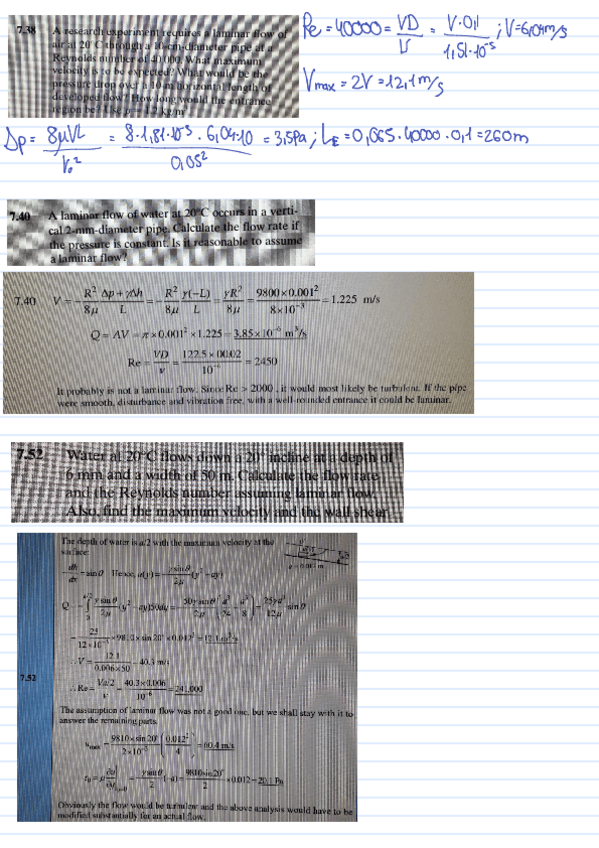 7.38 A research experiment requires a laminar flow of
air at 20°C through a 10-cm-diameter pipe at a
Reynolds number of 40 000. What maximum
velocity is to be expected? What would be the
pressure drop over a 10-m horizontal length of
developed flow? How long would the entrance
region be? Use ρ = 1.2 kg/m³
Re = 40000 = VD/ν = V·0,1/1,51·10⁻⁵ ; V=6,04m/s
Vmax = 2V = 12,1 m/s
Δp = 8μVL/r₀² = 8·1,81·10⁻⁵·6,04·10/0,05² = 3,5Pa ; LE = 0,065·40000·0,1 = 260m
7.40 A laminar flow of water at 20°C occurs in a verti-
cal 2-mm-diameter pipe. Calculate the flow rate if
the pressure is constant. Is it reasonable to assume
a laminar flow?
7.40 V = -R²/8μ Δp+γΔh/L = -R²/8μ γ(-L)/L = γR²/8μ = 9800×0.001²/8×10⁻³ = 1.225 m/s
Q = AV = π×0.001²×1.225 = 3.85×10⁻⁶ m³/s
Re = VD/ν = 1.225×0.002/10⁻⁶ = 2450
It probably is not a laminar flow. Since Re > 2000, it would most likely be turbulent. If the pipe
were smooth, disturbance and vibration free, with a well-rounded entrance it could be laminar.
7.52 Water at 20°C flows down a 20° incline at a depth of
6 mm and a width of 50 m. Calculate the flow rate
and the Reynolds number assuming laminar flow.
Also, find the maximum velocity and the wall shear.
The depth of water is a/2 with the maximum velocity at the
surface:
= sinθ Hence, u(y) = γsinθ/2μ (y² - ay)
sinθ
12×10⁻³ ×9810×sin 20°×0.012³ = 12.1 m³/s
∴V = 12.1/0.006×50 = 40.3 m/s
7.52
∴Re = Va/2/ν = 40.3×0.006/10⁻⁶ = 241,000
The assumption of laminar flow was not a good one, but we shall stay with it to
answer the remaining parts.
9810×sin 20°/2×10⁻³ (0.012²/4) = 60.4 m/s
γsinθ/2 (-a) = 9810sin20°/2 ×0.012 = 20.1 Pa
Obviously the flow would be turbulent and the above analysis would have to be
modified substantially for an actual flow.